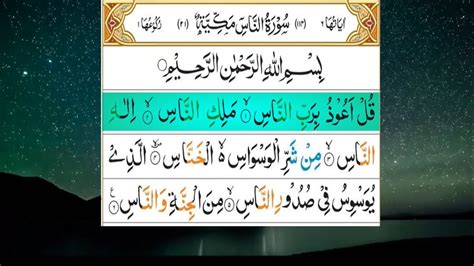 اٰيَاتُهَا ٦ سُوْرَةُ النَّاسِ مَكِّيَّةٌ رُكُوْعُهَا ١
بِسْمِ اللهِ الرَّحْمٰنِ الرَّحِيْمِ
قُلْ اَعُوْذُ بِرَبِّ النَّاسِ ۙ مَلِكِ النَّاسِ ۙ اِلٰهِ
النَّاسِ ۙ مِنْ شَرِّ الْوَسْوَاسِ ۙ الْخَنَّاسِ ۙ الَّذِيْ
يُوَسْوِسُ فِيْ صُدُوْرِ النَّاسِ ۙ مِنَ الْجِنَّةِ وَالنَّاسِ